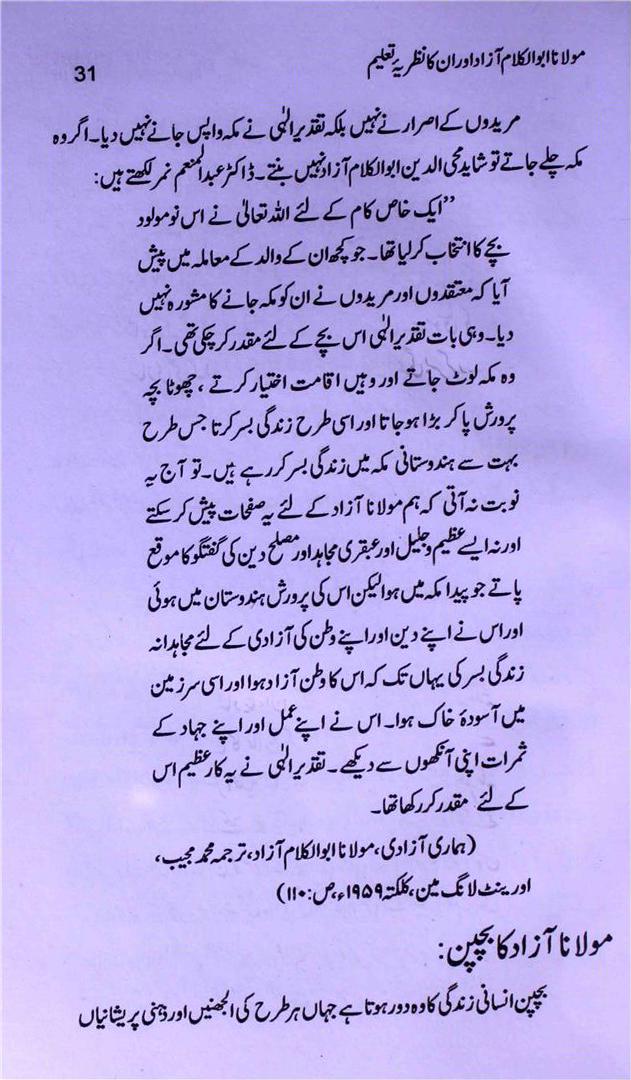 مولانا ابوالکلام آزاد اور ان کا نظریۂ تعلیم
31
مریدوں کے اصرار نے نہیں بلکہ تقدیر الٰہی نے مکہ واپس جانے نہیں دیا۔ اگر وہ
مکہ چلے جاتے تو شاید محی الدین ابوالکلام آزاد نہیں بنتے۔ ڈاکٹر عبدالمنعم نمر لکھتے ہیں:
”ایک خاص کام کے لئے اللہ تعالیٰ نے اس نومولود
بچے کا انتخاب کرلیا تھا۔ جو کچھ ان کے والد کے معاملہ میں پیش
آیا کہ معتقدوں اور مریدوں نے ان کو مکہ جانے کا مشورہ نہیں
دیا۔ وہی بات تقدیر الٰہی اس بچے کے لئے مقدر کرچکی تھی۔ اگر
وہ مکہ لوٹ جاتے اور وہیں اقامت اختیار کرتے ، چھوٹا بچہ
پرورش پاکر بڑا ہوجاتا اور اسی طرح زندگی بسر کرتا جس طرح
بہت سے ہندوستانی مکہ میں زندگی بسر کررہے ہیں۔ تو آج یہ
نوبت نہ آتی کہ ہم مولانا آزاد کے لئے یہ صفحات پیش کرسکتے
اور نہ ایسے عظیم و جلیل اور عبقری مجاہد اور مصلح دین کی گفتگو کا موقع
پاتے جو پیدا مکہ میں ہوا لیکن اس کی پرورش ہندوستان میں ہوئی
اور اس نے اپنے دین اور اپنے وطن کی آزادی کے لئے مجاہدانہ
زندگی بسر کی یہاں تک کہ اس کا وطن آزاد ہوا اور اسی سرزمین
میں آسودۂ خاک ہوا۔ اس نے اپنے عمل اور اپنے جہاد کے
ثمرات اپنی آنکھوں سے دیکھے۔ تقدیر الٰہی نے یہ کار عظیم اس
کے لئے مقدر کر رکھا تھا۔
(ہماری آزادی، مولانا ابوالکلام آزاد، ترجمہ محمد مجیب،
اورینٹ لانگ مین، کلکتہ ۱۹۵۹ء، ص: ۱۱۰)
مولانا آزاد کا بچپن:
بچپن انسانی زندگی کا وہ دور ہوتا ہے جہاں ہر طرح کی الجھنیں اور ذہنی پریشانیاں